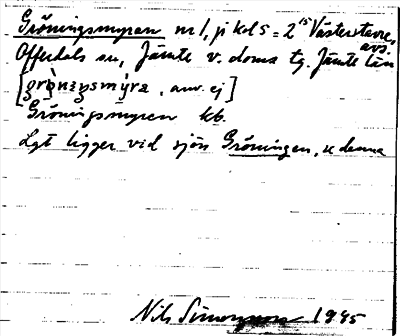 Gröningsmyran nr 1, jfr kol 5 = 2 15 Västerutanre, avs.
Offerdals sn, Jämtl v. doms tg. Jämtl län
[grö̀nəŋsmýra , anv. ej]
Gröningsmyren kb.
Lgt ligger vid sjön Gröningen, se denna
Nils Simonsson 1945